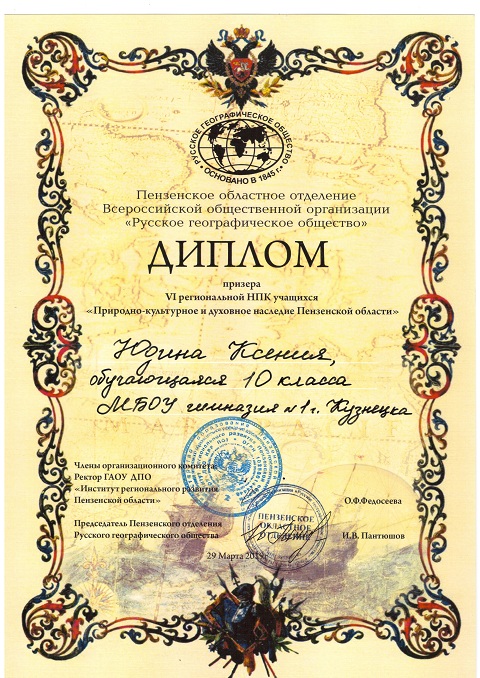 РУССКОЕ ГЕОГРАФИЧЕСКОЕ ОБЩЕСТВО
• ОСНОВАНО В 1845 г. •
Пензенское областное отделение
Всероссийской общественной организации
«Русское географическое общество»
ДИПЛОМ
призера
VI региональной НПК учащихся
«Природно-культурное и духовное наследие Пензенской области»
Юдина Ксения,
обучающаяся 10 класса
МБОУ гимназия №1 г. Кузнецка
Члены организационного комитета:
Ректор ГАОУ ДПО
«Институт регионального развития
Пензенской области»
О.Ф.Федосеева
Председатель Пензенского отделения
Русского географического общества
И.В. Пантюшов
ПЕНЗЕНСКОЕ
ОБЛАСТНОЕ
ОТДЕЛЕНИЕ
29 Марта